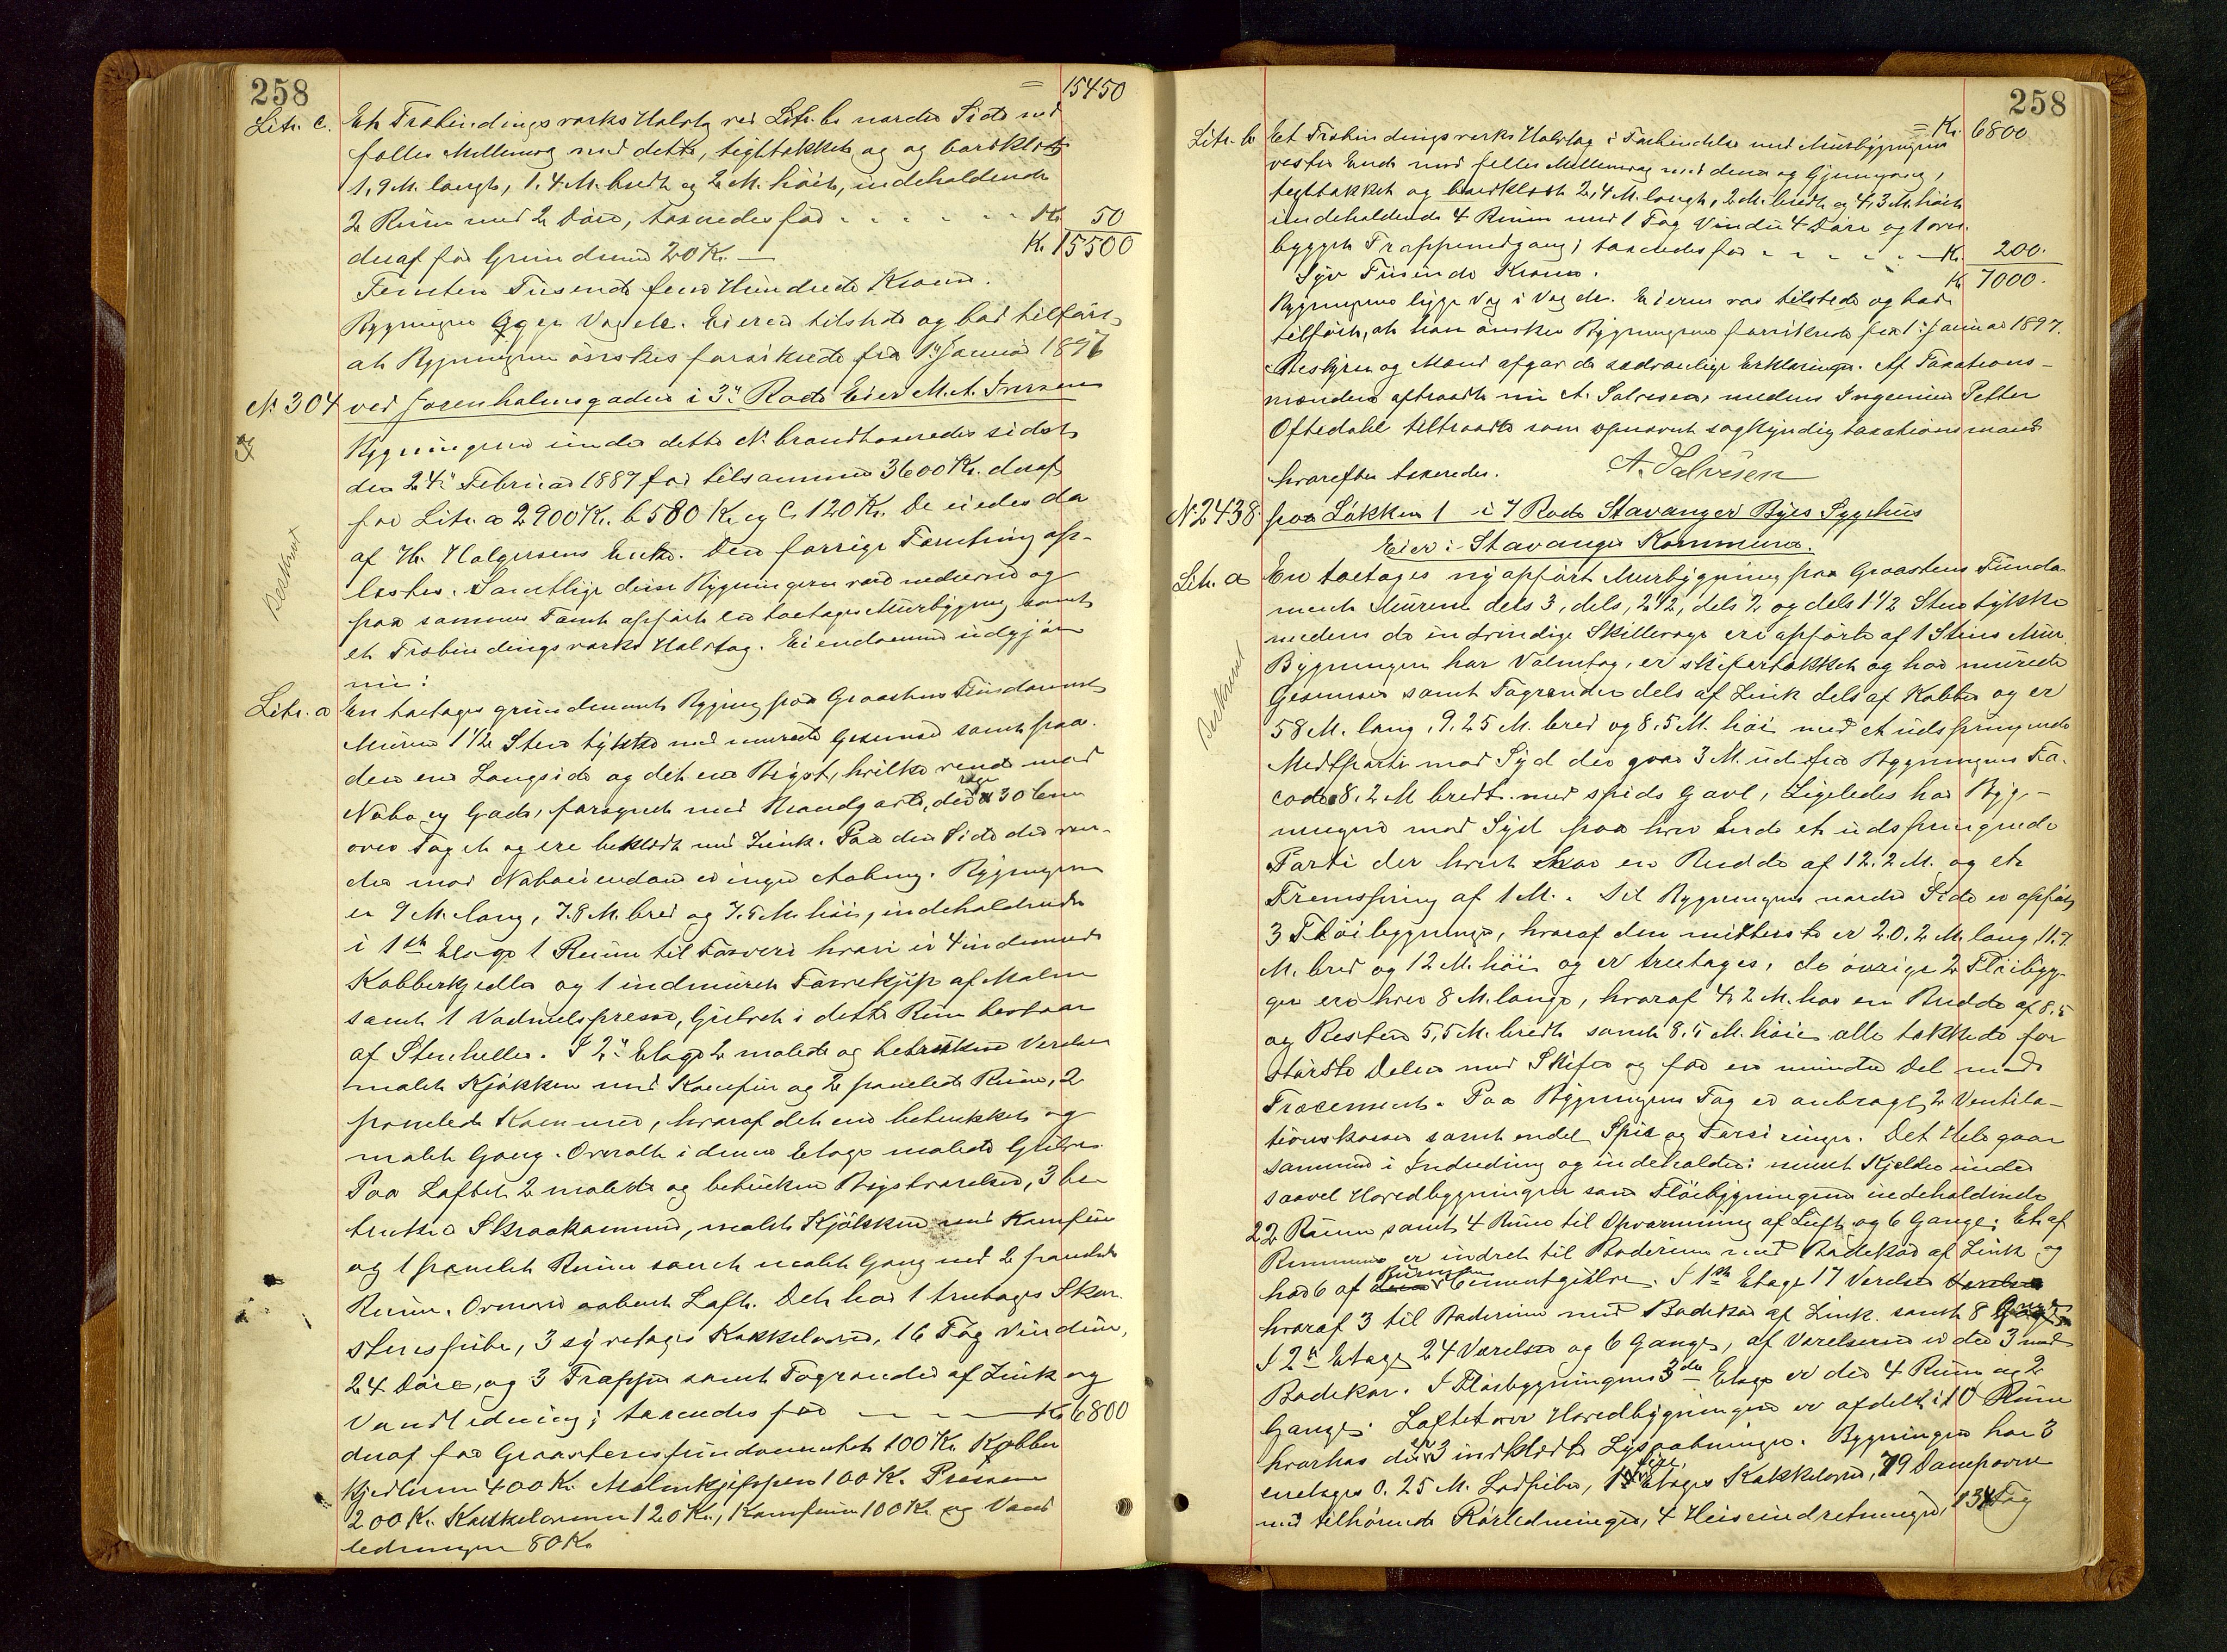 258
= 15450
Litr. c. Et Træbindingsværks Halvtag ved Litr. b. nordre Side med
fælles Mellemvæg med dette, tegltækket og og bordklædt
1,9 M. langt, 1.4 M. bredt og 2 M. höit, indeholdende
2 Rum med 2 Döre, taxeredes for - - - - - - Kr. 50
deraf for Grundmur 20 Kr. — Kr. 15500
Femten Tusende fem Hundrede Kroner.
Bygningen ligger Væg i Væg. Eieren tilstede og bad tilført
at Bygningerne önskes forsikrede fra 1ste Januar 1896
No. 304 ved Jorenholmsgaden i 3die Rode Eier M. A. Iversen
Bygningerne under dette No. brandtaxeredes sidst
den 24de Februar 1887 for tilsammen 3600 Kr. deraf
for Litr. a 2900 Kr. b 580 Kr. og c 120 Kr. De eiedes da
af H. Halgersens Enke. Den forrige Forretning op-
læstes. Samtlige disse Bygninger er nedrevne og
paa sammes Tomt opfört en toetages Murbygning samt
et Træbindingsværks Halvtag. Eiendommen udgjör
nu:
Beskrevet
Litr. a En toetages grundmuret Bygning paa Graastens Fundament
Murene 1 1/2 Sten tykke med murede Gesimser samt paa
den ene Langside og det ene Bryst, hvilke vender mod
Nabo og Gade, forsynet med Brandgavle, der rager 30 cm
over Taget og ere beklædt med Zink. Paa den Side der ven-
der mod Naboeiendom er ingen Aabning. Bygningen
er 9 M. lang, 7.8 M. bred og 7.5 M. höi, indeholdende
i 1ste Etage 1 Rum til Farveri hvori er 4 indmurede
Kobberkjedler og 1 indmuret Farvekjip af Malm
samt 1 Vadmelspresse, Gulvet i dette Rum bestaar
af Stenheller. I 2den Etage 2 malede og betrukne Værelser
malet Kjökken med Komfur og 2 panelede Rum, 2
panelede Kammer, hvoraf det ene betrukket og
malet Gang. Overalt i denne Etage malede Gulve.
Paa Loftet 2 malede og betrukne Brystværelser, 3 be-
trukne Skraakammer, malet Kjökken med Komfur
og 1 panelet Rum samt malet Gang med 2 panelede
Rum. Ovenover aabent Loft. Det har 1 treetages Skor-
stenspibe, 3 syvetages Kakkelovne, 16 Fag Vinduer,
24 Döre, og 3 Trapper samt Tagrender af Zink og
Vandledning; taxeredes for — — — Kr. 6800
deraf for Graastensfundamentet 100 Kr. Kobber
Kjedlerne 400 Kr. Malmkjippen 100 Kr. Pressen
200 Kr. Kakkelovnene 120 Kr., Komfurene 100 Kr. og Vand
ledningen 80 Kr.
258
= Kr. 6800
Litr. b Et Træbindingsværks Halvtag i Forbindelse med Murbygningens
vestre Ende med fælles Mellemvæg med denne og Gjennemgang,
tegltækket og bordklædt 2,4 M. langt, 2 M. bredt og 4,3 M. höit
indeholdende 4 Rum med 1 Fag Vindu 4 Döre og 1 over-
bygget Trappenedgang; taxeredes for - - - - - Kr. 200.
Syv Tusende Kroner. Kr. 7000.
Bygningerne ligge Væg i Væg. Eieren var tilstede og bad
tilfört, at han önsker Bygningerne forsikrede fra 1ste Januar 1897.
Bestyrer og Mænd afgav de sædvanlige Erklæringer. Af Taxations-
mændene aftraadte nu A. Salvesen, medens Ingeniør Petter
Oftedahl tiltraadte som opnævnt sagkyndig taxationsmand
hvorefter taxeredes. A. Salvesen
No 2438 paa Løkken 1 i 7 Rode Stavanger Byes Sygehus
Eier: Stavanger Kommune.
Litr. a En toetages nyopfört Murbygning paa Graastens Funda-
ment Murene dels 3, dels, 2 1/2, dels 2 og dels 1 1/2 Sten tykke
medens de indvendige Skillevæge ere opförte af 1 Stens Mur
Bygningen har Valmtag, er skifertækket og har murede
Gesimser samt Tagrender dels af Zink dels af Kobber og er
58 M. lang, 9.25 M. bred og 8.5 M. höi med et udspringende
Midtparti mod Syd der gaar 3 M. ud fra Bygningens Fa-
cade 8.2 M bredt med spids Gavl, Ligeledes har Byg-
ningen mod Syd paa hver Ende et udspringende
Parti der hvert har en Bredde af 12.2 M. og et
Fremspring af 1 M. Til Bygningens nordre Side er opført
3 Flöibygninger, hvoraf den mitterste er 20.2 M. lang, 11.7
M. bred og 12 M. höi og er treetages, de övrige 2 Flöibyg-
ger ere hver 8 M. lange, hvoraf 4,2 M. har en Bredde af 8.5
og Resten 5,5 M. bredt samt 8.5 M. höie alle tækkede for
störste Delen med Skifer og for en mindre Del med
Træcement. Paa Bygningens Tag er anbragt 2 Ventila-
tionskasser samt endel Spir og Forsiringer. Det Hele gaar
sammen i Indredning og indeholder: muret Kjelder under
saavel Hovedbygningen som Flöibygningerne indeholdende
22 Rum samt 4 Rum til Opvarmning af Luft og 6 Gange. Et af
Rummene er indredet til Baderum med Badekar af Zink og
har 6 af Rummene Cementgulve. I 1ste Etage 17 Værelser
hvoraf 3 til Baderum med Badekar af Zink samt 8 Gange
I 2den Etage 24 Værelser og 6 Gange, af Værelserne er der 3 med
Badekar. I Flöibygningens 3die Etage er der 4 Rum og 2
Gange. Loftet over Hovedbygningen er afdelt i 10 Rum
hvorhos der er 3 indklædte Lysaabninger. Bygningen har 3
enetages 0.25 M. Lodpiber, 1 fire Etages Kakkelovn, 79 Dampovne
med tilhörende Rörledninger, 4 Heiseindretninger, 134 Fag
Beskrevet